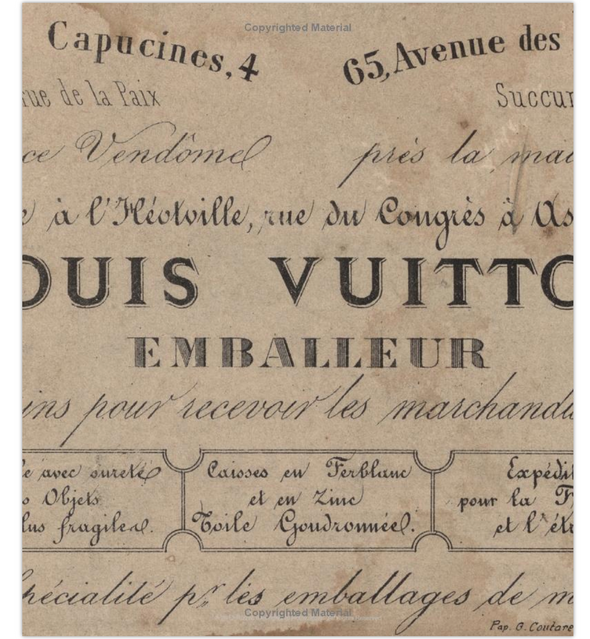 Copyrighted Material
Capucines, 4 65, Avenue des
rue de la Paix Succur
ce Vendôme près la mai
e à l'Héotville, rue du Congrès à As
OUIS VUITTO
EMBALLEUR
ins pour recevoir les marchandi
e avec sureté Caisses en Ferblanc Expédit
s Objets et en Zinc pour la F
lus fragiles. Toile Goudronnée. et l'étr
Spécialité pr les emballages de m
Copyrighted Material
Pap. G. Coutare